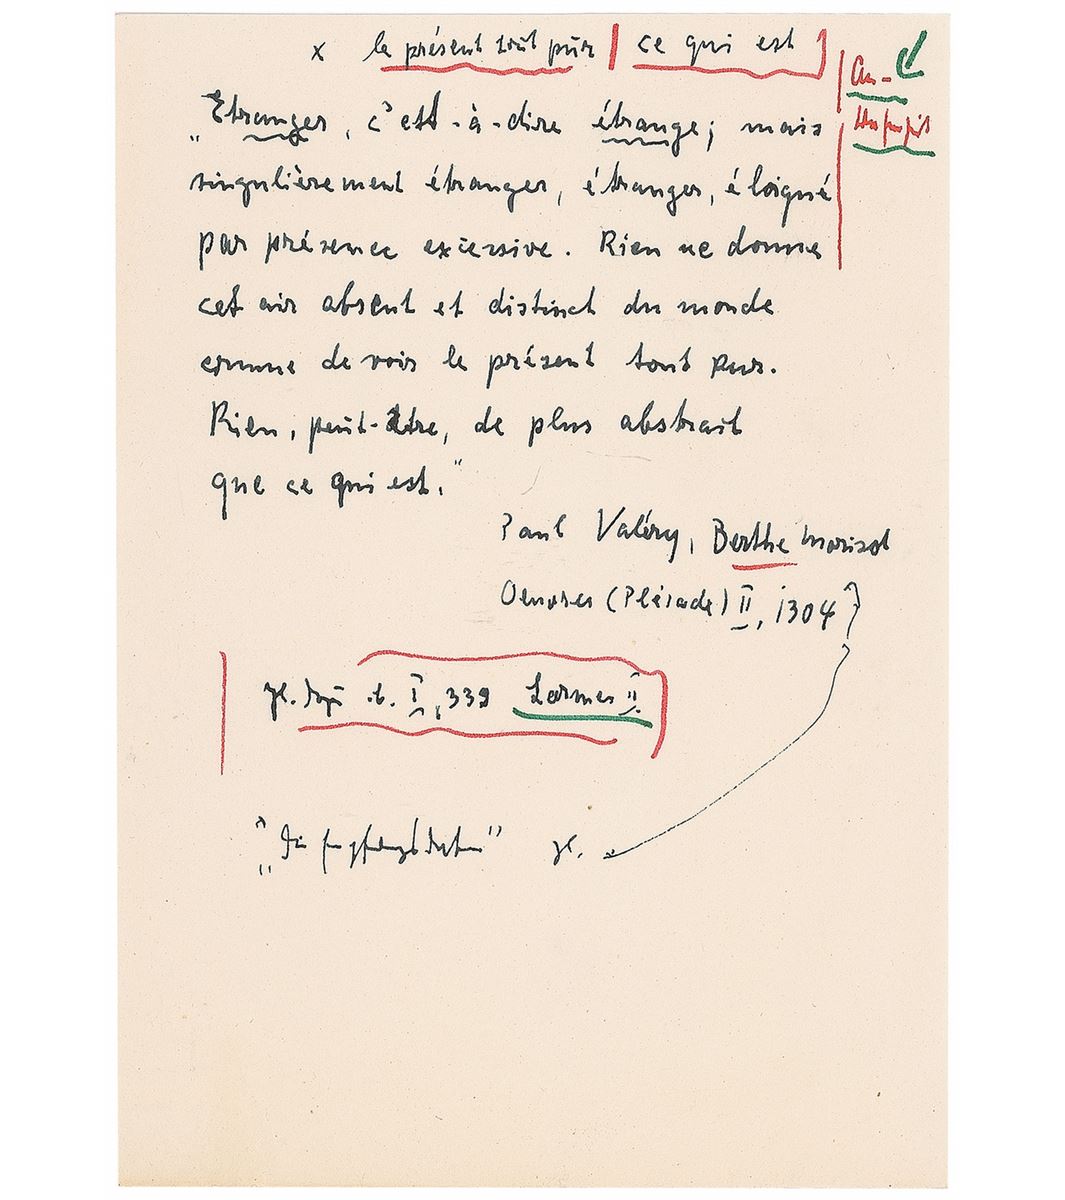 x le présent tout pur | ce qui est
An-
„Etranger, c'est-à-dire étrange; mais
singulièrement étranger, étranger, éloigné
par présence excessive. Rien ne donne
cet air absent et distinct du monde
comme de voir le présent tout pur.
Rien, peut-être, de plus abstrait
que ce qui est."
Paul Valéry, Berthe Morisot
Oeuvres (Pléiade) II, 1304
vgl. dazu I, 339 Larmes II
vgl.